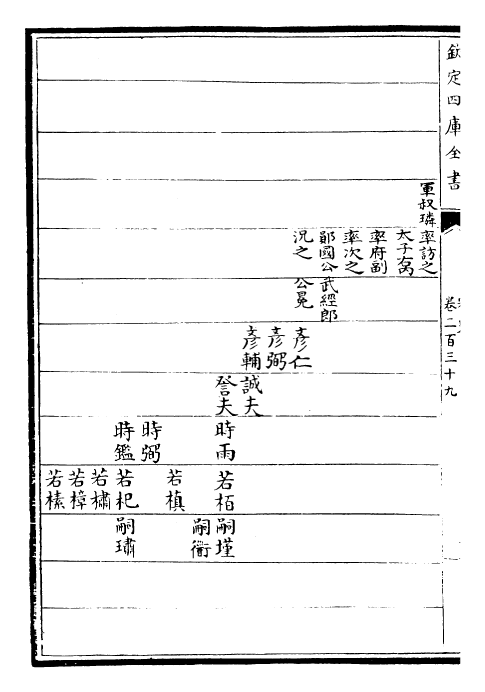 欽定四庫全書
卷二百三十九
軍叔璘
率訪之
太子右
率府副
率次之
鄖國公
況之
武經郎
公冕
彦仁
彦弼
彦輔
誠夫
詧夫
時雨
時弼
時鑑
若栢
若槙
若杞
若橚
若樟
若榡
嗣瑾
嗣衢
嗣璛